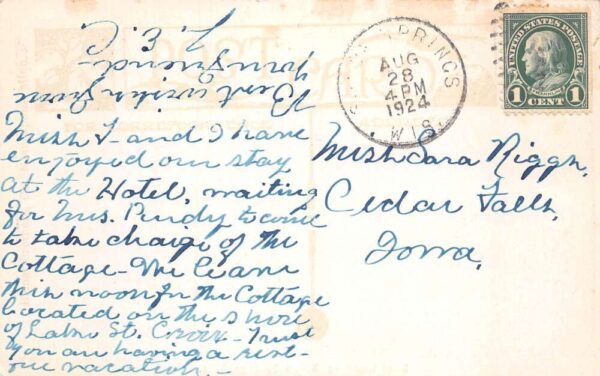 Miss F- and I have
enjoyed our stay
at the Hotel, waiting
for Mrs. Purdy to come
to take charge of the
Cottage - We leave
this noon for the Cottage
located on the shore
of Lake St. Croix - Trust
you are having a rest-
one vacation. -
Best wishes from
your friend -
L. E. C.
SPRINGS
AUG
28
4 PM
1924
WIS.
UNITED STATES POSTAGE
FRANKLIN
1 CENT 1
Miss Sara Riggs,
Cedar Falls,
Iowa,